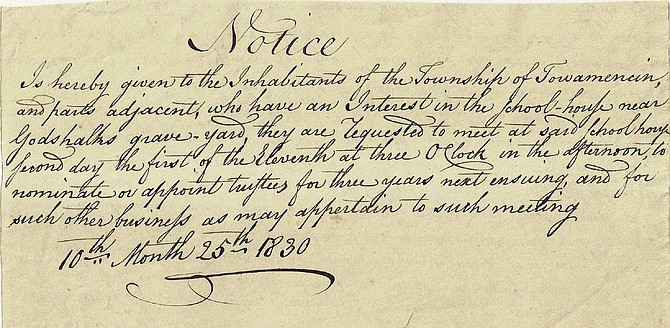 Notice
Is hereby given to the Inhabitants of the Township of Towamencin,
and parts adjacent, who have an Interest in the school-house near
Godshalks grave-yard, they are requested to meet at said school house
second day the first of the Eleventh at three O'Clock in the afternoon, to
nominate or appoint trustees for three years next ensuing, and for
such other business as may appertain to such meeting
10th Month 25th 1830